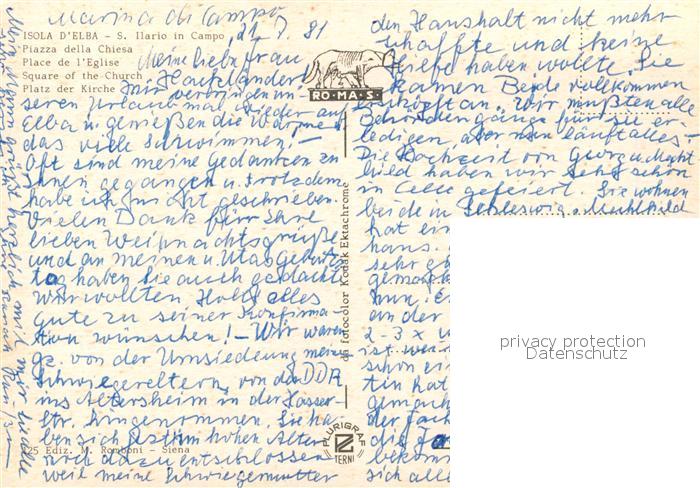 Marina di Campo
21. 7. 81
ISOLA D'ELBA - S. Ilario in Campo
Piazza della Chiesa
Place de l'Eglise
Square of the Church
Platz der Kirche
Meine liebe Frau
wir verbringen un-
seren Urlaub mal wieder auf
Elba u. genießen die Wärme u.
das viele Schwimmen! -
Oft sind meine Gedanken zu
Ihnen gegangen u. trotzdem
habe ich nicht geschrieben.
Vielen Dank für Ihre
lieben Weihnachtsgrüße
und an meinen u. Utas Geburts-
tag haben Sie auch gedacht
Wir wollten Holg alles
gute zu seiner Konfirma-
tion wünschen! - Wir waren
gz. von der Umsiedeung meiner
Schwiegereltern, von der DDR
ins Altersheim in der
Str. hingenommen. Sie ha-
ben sich jetzt im hohen Alter
noch dazu entschlossen
weil meine Schwiegermutter
den Haushalt nicht mehr
schaffte und keine
Hilfe haben wollte. Sie
kamen Beide vollkommen
erschöpft an. Wir mußten alle
Behördengänge für sie er-
ledigen, aber nun läuft alles -
Die Hochzeit von Georg u. Mecht
hild haben wir sehr schön
in Celle gefeiert. Sie wohnen
beide in Schleswig. Mechthild
hat ein
haus.
sehr
nun.
an der
2-3 x
ist
schon
tin hat
gemach
der Fach
die
bekomm
sich alle
RO·MA·S·
dа fotocolor Kodak Ektachrome
PLURIGRAF
TERNI
25 Ediz. M. Romboni - Siena
privacy protection
Datenschutz